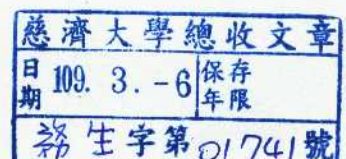 慈濟大學總收文章
日期 109. 3. -6 保存年限
務生字第01741號